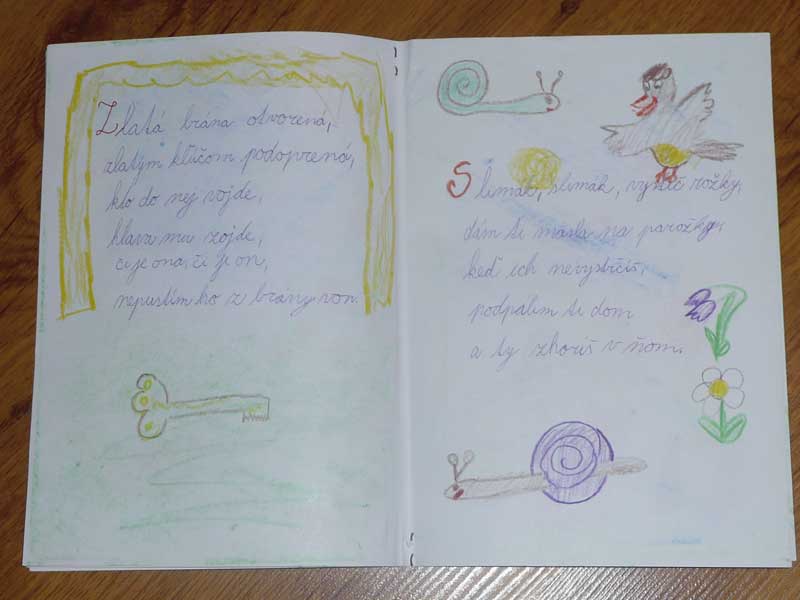 Zlatá brána otvorená,
zlatým kľúčom podoprená,
kto do nej vojde,
hlava mu zojde,
či je ona, či je on,
nepustím ho z brány von.
Slimák, slimák, vystrč rožky,
dám ti masla na parožky,
keď ich nevystrčíš,
podpálim ti dom
a ty zhoríš v ňom.